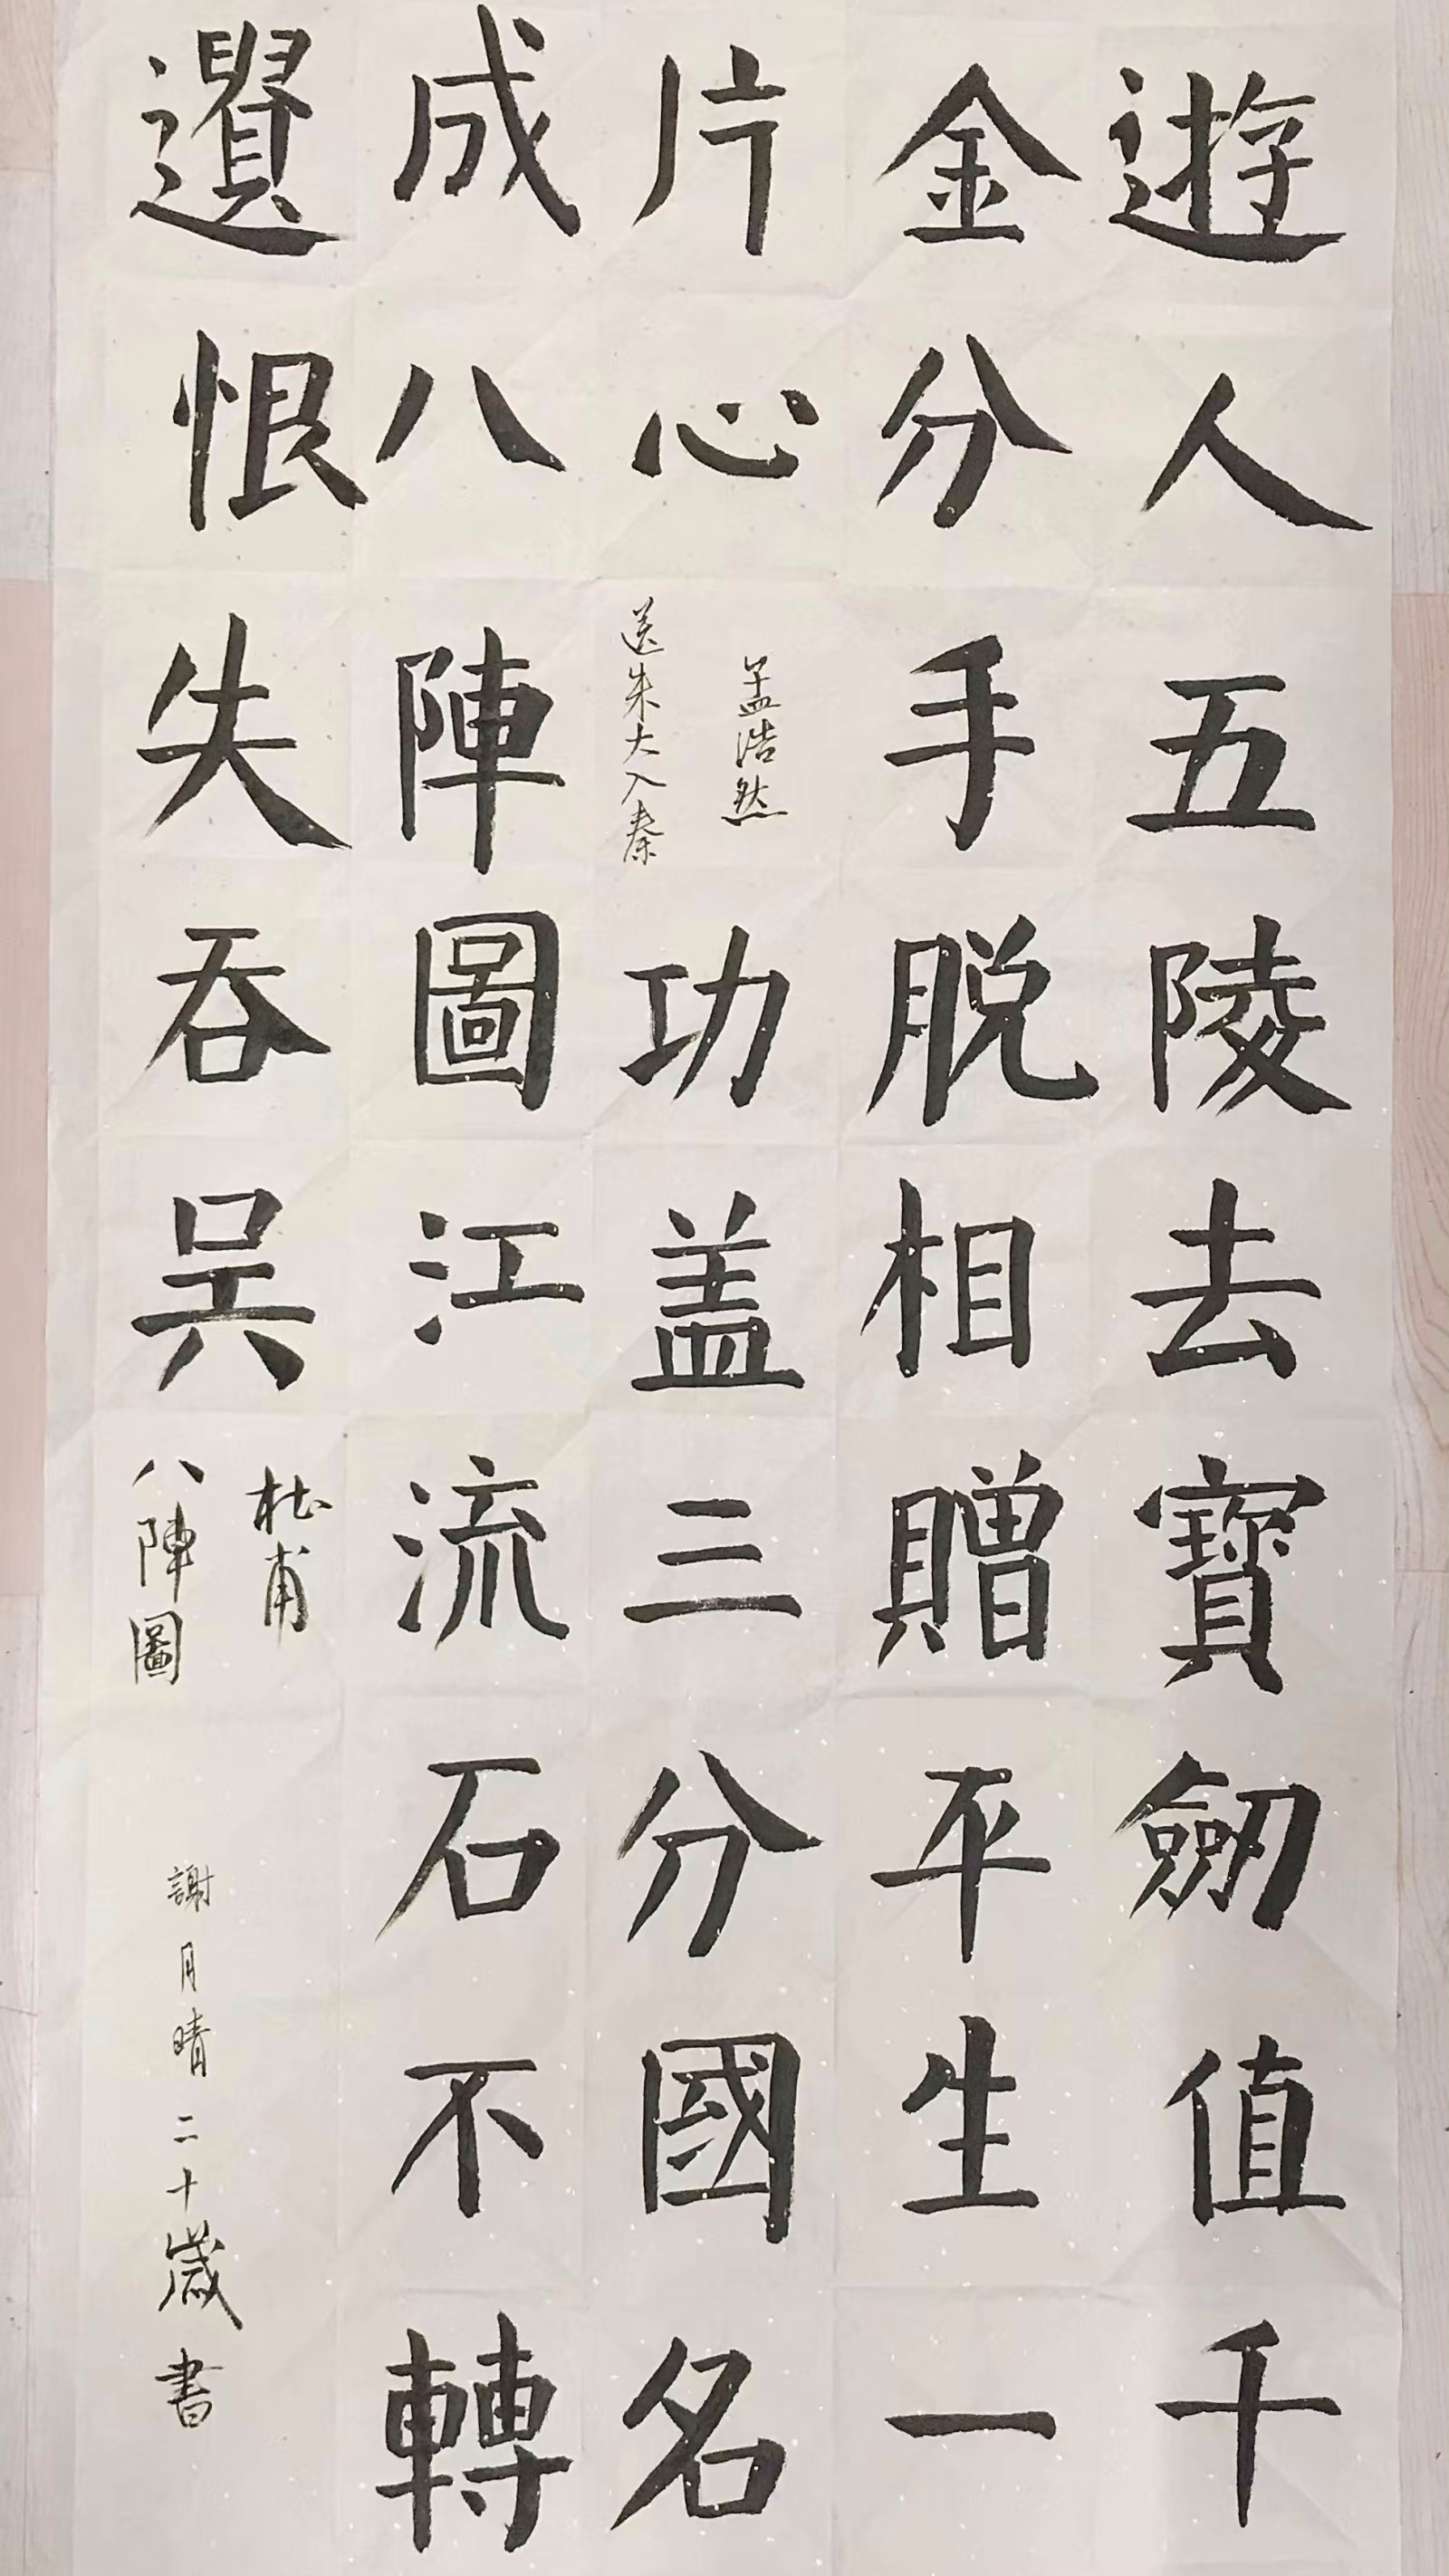 遊人五陵去寶劒值千
金分手脱相贈平生一
片心
孟浩然
送朱大入秦
功盖三分國名
成八陣圖江流石不轉
遺恨失吞吳
杜甫
八陣圖
謝月晴二十歲書